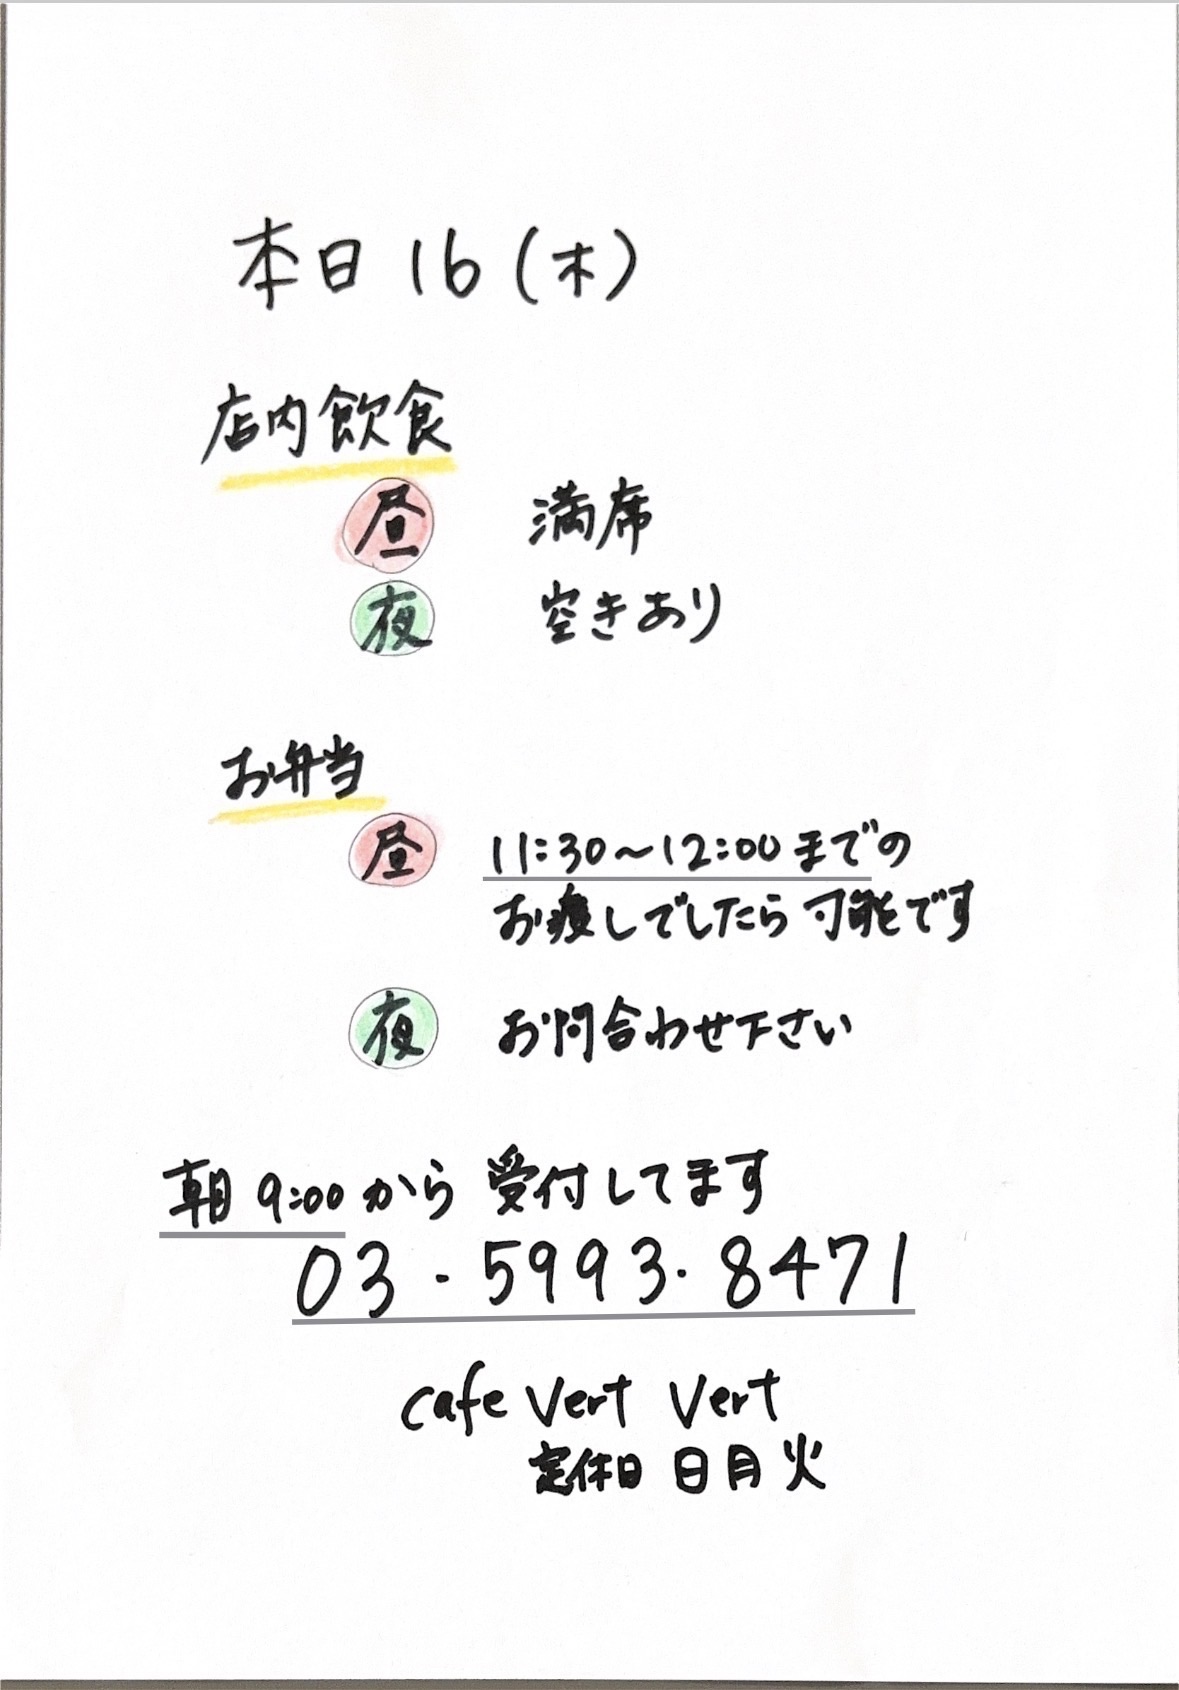 本日 16 (木)
店内飲食
昼 満席
夜 空きあり
お弁当
昼 11:30~12:00 までの
お渡しでしたら 可能です
夜 お問合わせ下さい
朝 9:00 から 受付してます
03.5993.8471
cafe Vert Vert
定休日 日月火